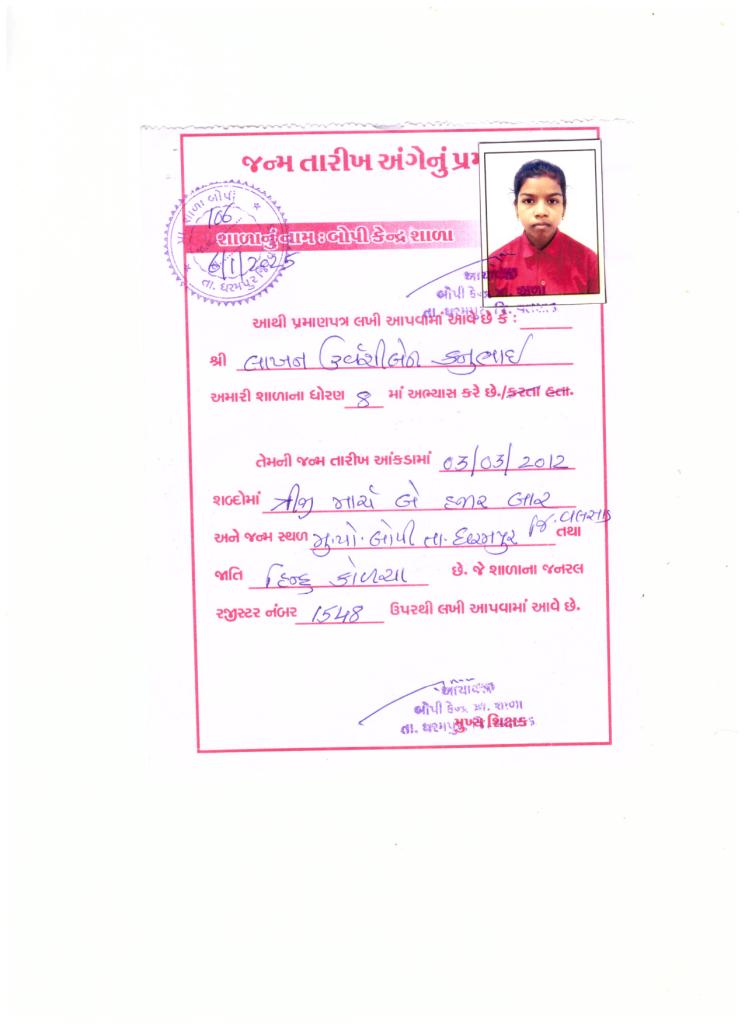 જન્મ તારીખ અંગેનું પ્રમ
પ્રા. શાળા બોપી
106
6/1/2025
તા. ધરમપુર
શાળાનું નામ : બોપી કેન્દ્ર શાળા
આચાર્ય
બોપી કેન્દ્ર પ્રા. શાળા
તા. ધરમપુર, જિ. વલસાડ
આથી પ્રમાણપત્ર લખી આપવામાં આવે છે કે :
શ્રી લાખન ઉર્વશીબેન કનુભાઈ
અમારી શાળાના ધોરણ 8 માં અભ્યાસ કરે છે./કરતા હતા.
તેમની જન્મ તારીખ આંકડામાં 03/03/2012
શબ્દોમાં ત્રીજી માર્ચ બે હજાર બાર
અને જન્મ સ્થળ મુ.પો. બોપી તા. ધરમપુર જિ. વલસાડ તથા
જાતિ હિન્દુ કોળચા છે. જે શાળાના જનરલ
રજીસ્ટર નંબર 1548 ઉપરથી લખી આપવામાં આવે છે.
આચાર્ય
બોપી કેન્દ્ર પ્રા. શાળા
તા. ધરમપુર
મુખ્ય શિક્ષક